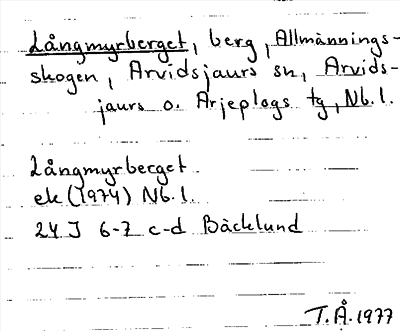 Långmyrberget, berg, Allmännings-
skogen, Arvidsjaurs sn, Arvids-
jaurs o. Arjeplogs tg, Nb. l.
Långmyrberget
ek (1974) Nb. l.
24 J 6-7 c-d Bäcklund
T. Å. 1977